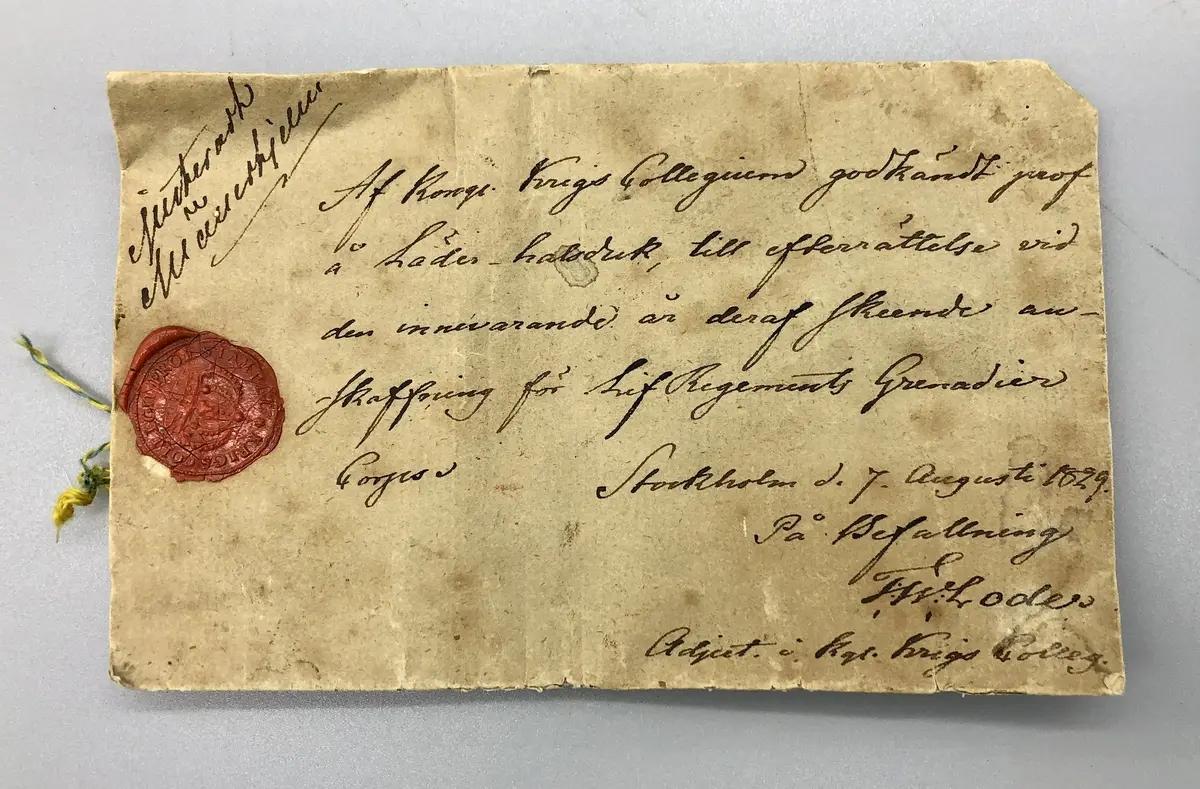 Af Kongl. Krigs Collegium godkändt prof
å Läder-halsduk, till efterrättelse vid
den innevarande år deraf skeende an-
skaffning för Lif Regements Grenadier
Corps
Stockholm d. 7. Augusti 1829.
På Befallning
F:W: Lode
Adjut. i Kgl. Krigs Colleg.